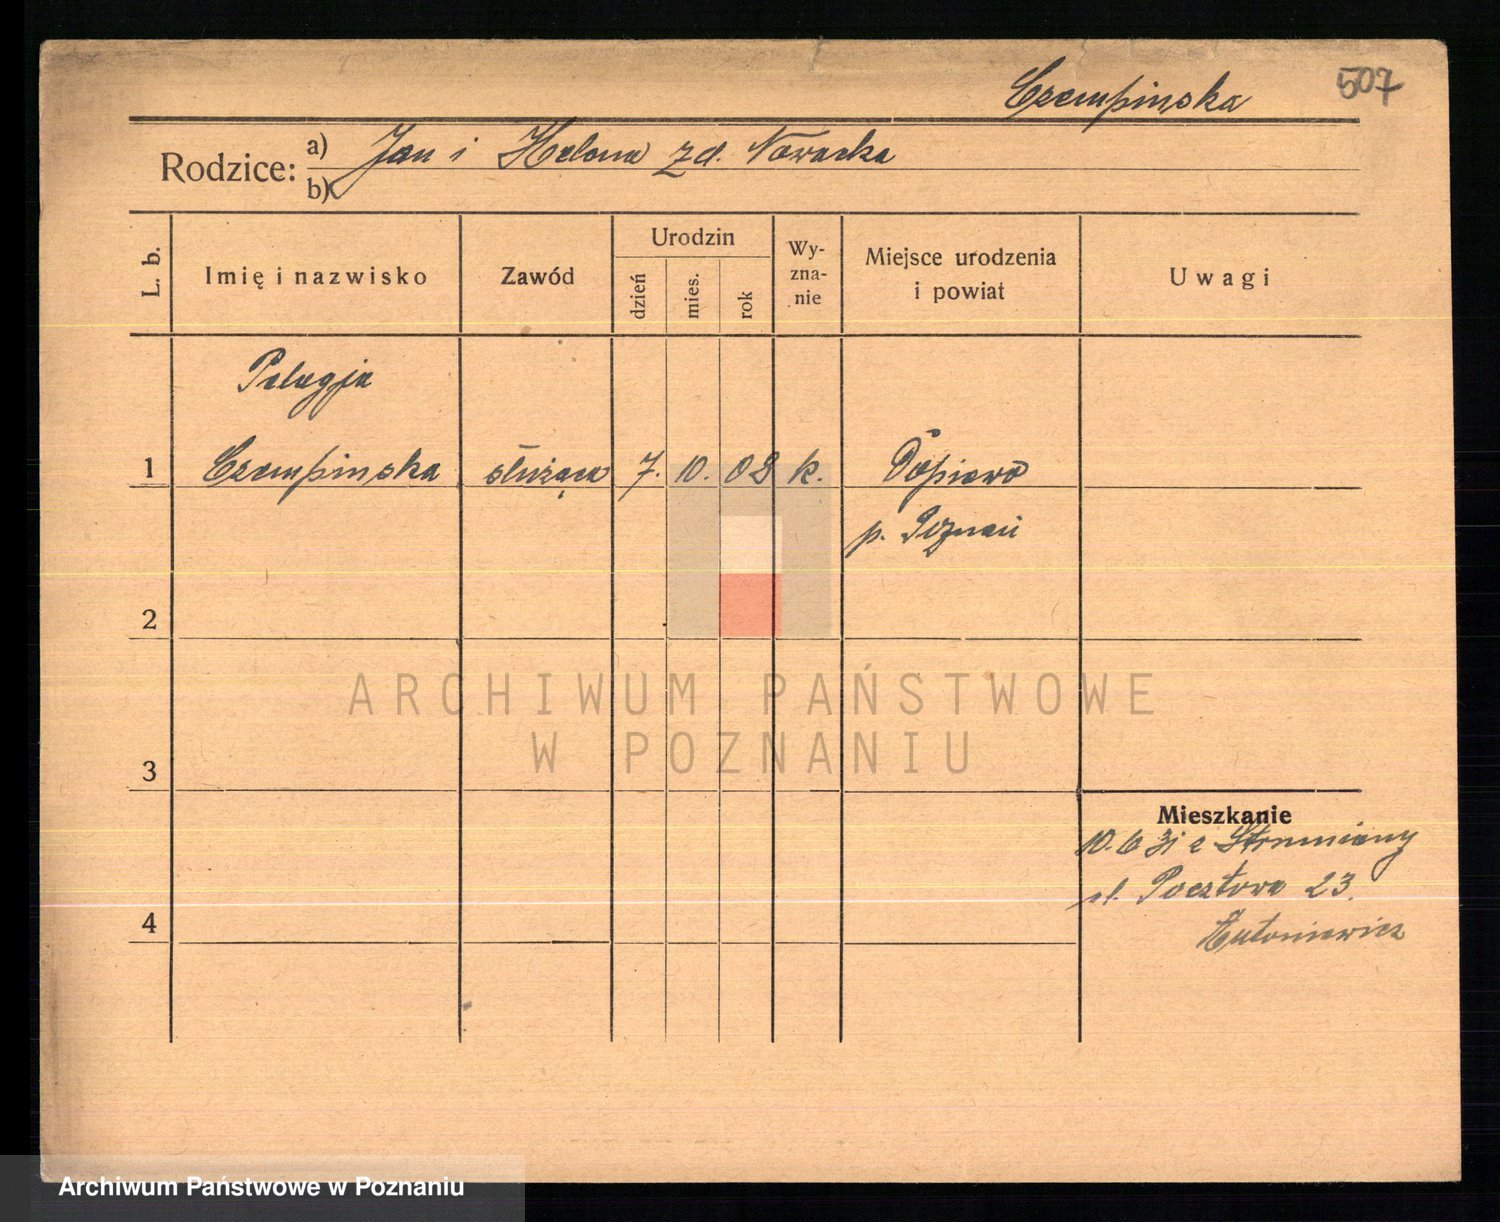 Czempinska
507
Rodzice:
a) Jan i Helena zd. Nowacka
b)
L. b.
Imię i nazwisko
Zawód
Urodzin
dzień
mies.
rok
Wy-
zna-
nie
Miejsce urodzenia
i powiat
Uwagi
Pelagja
1 Czempinska służąca 7. 10. 02 k. Dopiewo
p. Poznań
2
ARCHIWUM PAŃSTWOWE
W POZNANIU
3
Mieszkanie
10.6 31 z Strumiany
ul. Pocztowa 23.
4
Antoniewicz
Archiwum Państwowe w Poznaniu